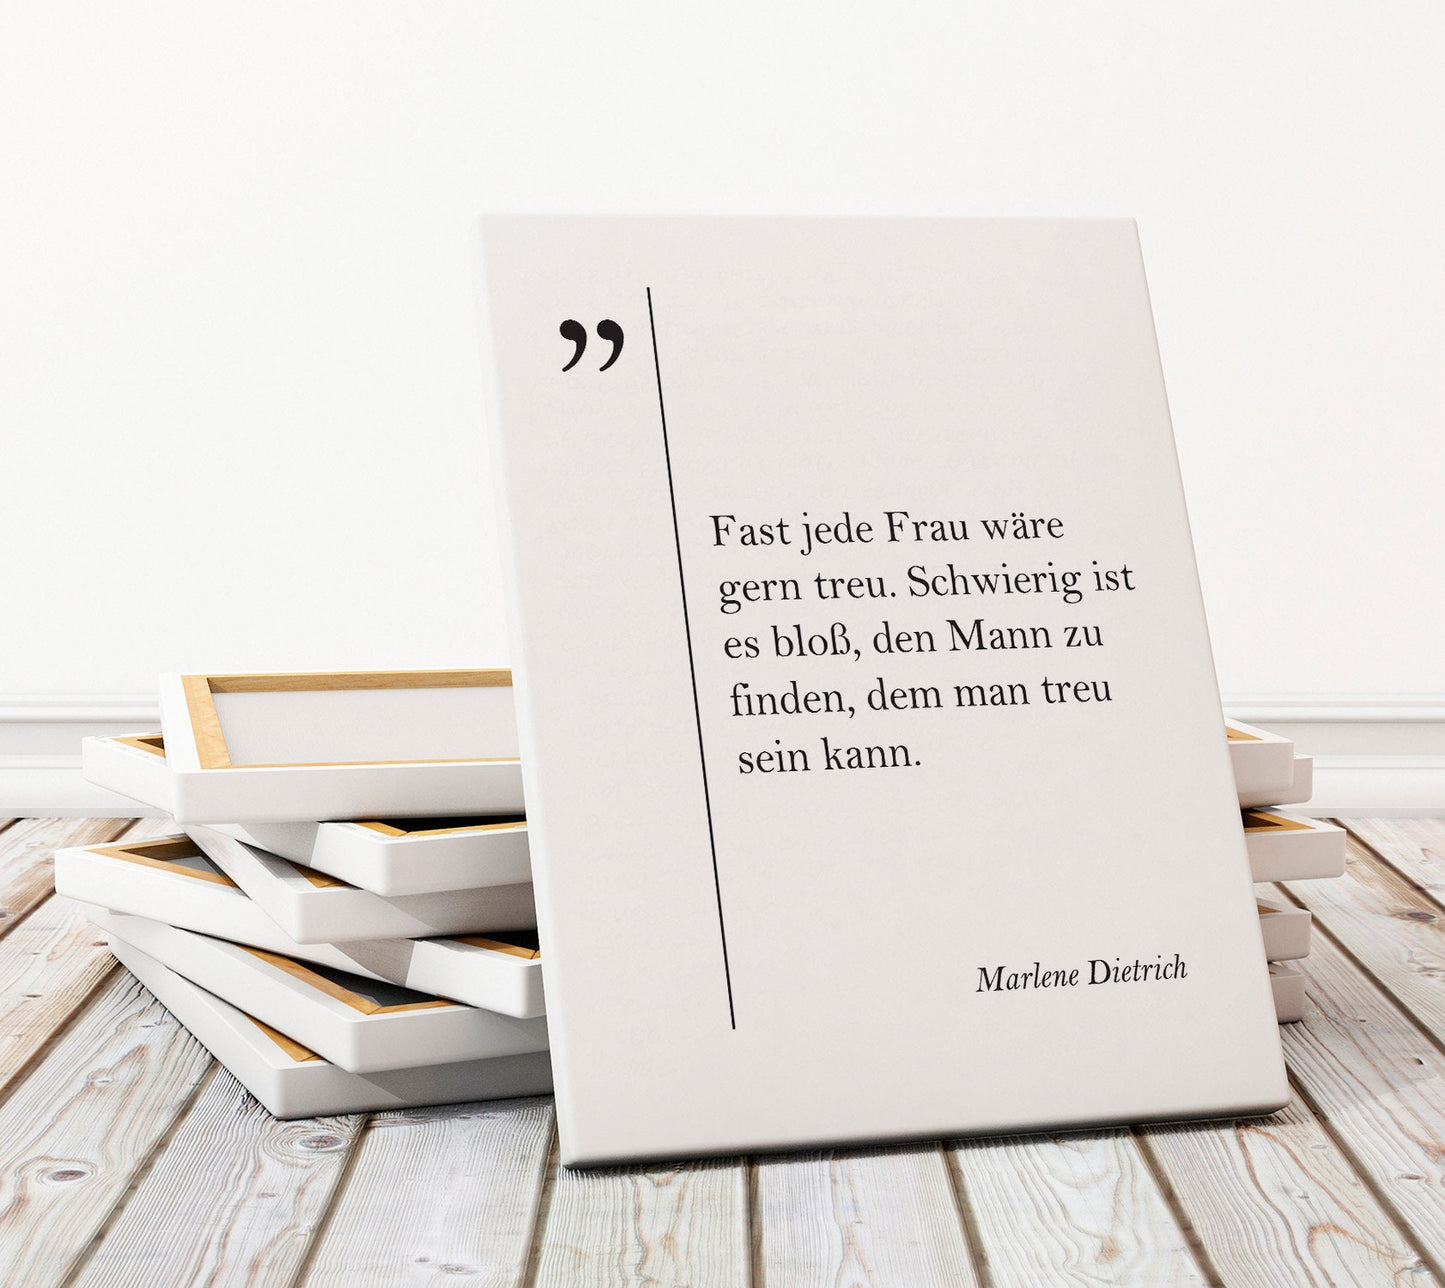 ”
Fast jede Frau wäre
gern treu. Schwierig ist
es bloß, den Mann zu
finden, dem man treu
sein kann.
Marlene Dietrich